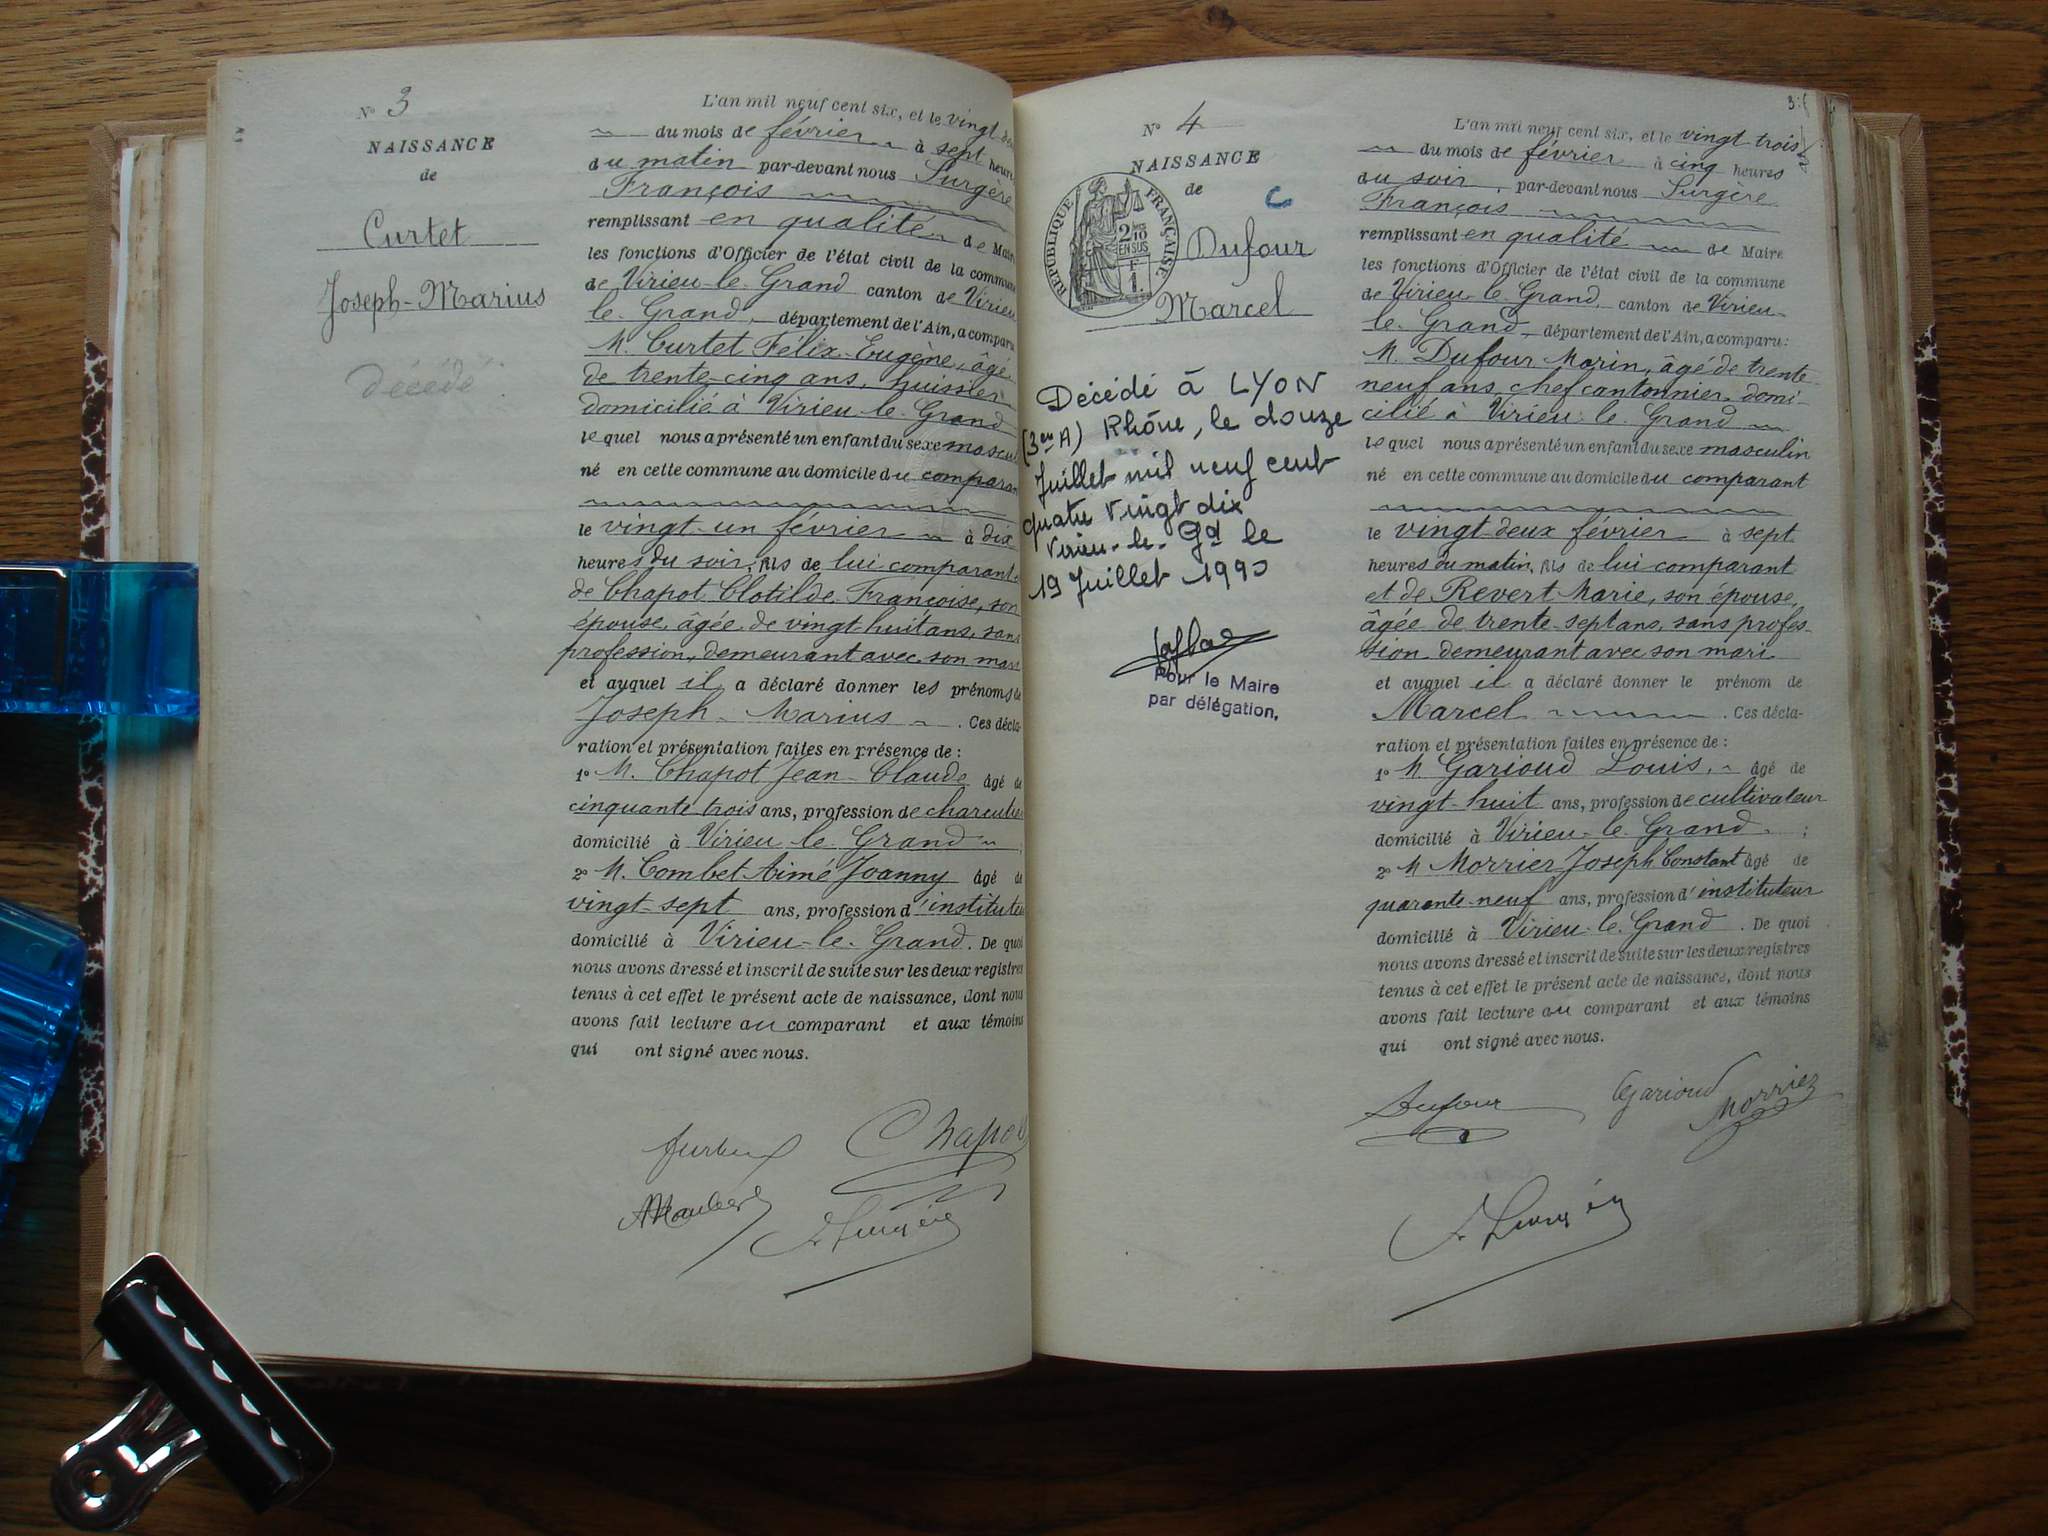 N° 3
NAISSANCE
de
Curtet
Joseph-Marius
Décédé
L'an mil neuf cent six, et le vingt
du mois de février à sept heures
du matin par-devant nous Surgère
François
remplissant en qualité de Maire
les fonctions d'Officier de l'état civil de la commune
de Virieu-le-Grand canton de Virieu
le-Grand, département de l'Ain, a comparu
M. Curtet Félix-Eugène, âgé
de trente-cinq ans, huissier
domicilié à Virieu-le-Grand
lequel nous a présenté un enfant du sexe mascu
né en cette commune au domicile du comparan
le vingt-un février à dix
heures du soir, fils de lui comparant
de Chapot Clotilde Françoise, son
épouse, âgée de vingt-huit ans, sans
profession, demeurant avec son mari
et auquel il a déclaré donner les prénoms de
Joseph-Marius. Ces décla-
ration et présentation faites en présence de :
1° M. Chapot Jean-Claude âgé de
cinquante-trois ans, profession de charcutier
domicilié à Virieu-le-Grand ;
2° M. Combet Aimé Joanny âgé de
vingt-sept ans, profession d'instituteu
domicilié à Virieu-le-Grand. De quoi
nous avons dressé et inscrit de suite sur les deux registres
tenus à cet effet le présent acte de naissance, dont nous
avons fait lecture au comparant et aux témoins
qui ont signé avec nous.
Chapot
N° 4
NAISSANCE
de
C
RÉPUBLIQUE FRANÇAISE
2/10
EN SUS
F
1.
Dufour
Marcel
Décédé à LYON
(3e A) Rhône, le douze
Juillet mil neuf cent
quatre vingt dix
Virieu-le-Gd le
19 Juillet 1990
Pour le Maire
par délégation,
L'an mil neuf cent six, et le vingt trois
du mois de février à cinq heures
du soir, par-devant nous Surgère
François
remplissant en qualité de Maire
les fonctions d'Officier de l'état civil de la commune
de Virieu-le-Grand, canton de Virieu-
le-Grand, département de l'Ain, a comparu :
M. Dufour Marin, âgé de trente-
neuf ans, chef cantonnier, domi-
cilié à Virieu-le-Grand
lequel nous a présenté un enfant du sexe masculin
né en cette commune au domicile du comparant
le vingt-deux février à sept
heures du matin, fils de lui comparant
et de Revert Marie, son épouse,
âgée de trente-sept ans, sans profes-
sion demeurant avec son mari
et auquel il a déclaré donner le prénom de
Marcel. Ces décla-
ration et présentation faites en présence de :
1° M. Garioud Louis, âgé de
vingt-huit ans, profession de cultivateur
domicilié à Virieu-le-Grand ;
2° M Morrier Joseph Constant âgé de
quarante-neuf ans, profession d'instituteur
domicilié à Virieu-le-Grand. De quoi
nous avons dressé et inscrit de suite sur les deux registres
tenus à cet effet le présent acte de naissance, dont nous
avons fait lecture au comparant et aux témoins
qui ont signé avec nous.
Dufour Garioud Morrier